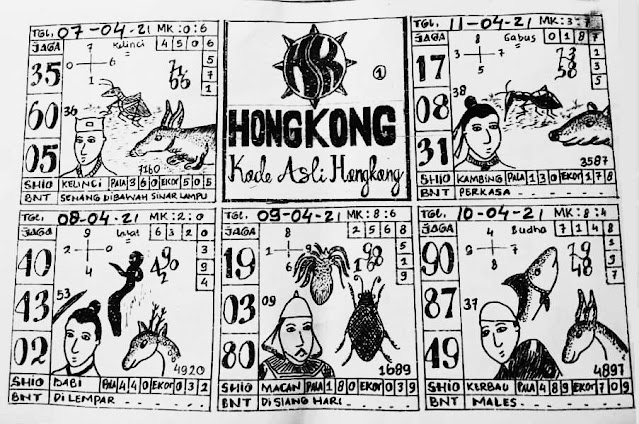 TGL, 07-04-21 MK:0:6
JAGA
35
60
05
7
0 6
1
Kelinci
4 5 0 6
5
7
1
71
65
36
7160
SHIO KELINCI PALA 3 6 0 EKOR 5 0 5
BNT SENANG DIBAWAH SINAR LAMPU
HK
1
HONGKONG
Kode Asli Hongkong
TGL, 11-04-21 MK:3:7
JAGA
17
08
31
8
3 7
5
Gabus
0 1 8 7
1
3
5
73
58
38
3587
SHIO KAMBING PALA 1 3 0 EKOR 1 7 8
BNT PERKASA - - - - - - -
TGL, 08-04-21 MK:2:0
JAGA
40
43
02
9
2 0
4
6 3 2 0
3
9
4
53
4920
SHIO BABI PALA 4 4 0 EKOR 0 3 2
BNT DI LEMPAR - - - - - - -
TGL, 09-04-21 MK:8:6
JAGA
19
03
80
8
1 6
9
2 5 6 8
5
1
9
98
168
09
1689
SHIO MACAN PALA 1 8 0 EKOR 0 3 9
BNT DI SIANG HARI - - - - - -
TGL, 10-04-21 MK:8:4
JAGA
90
87
49
9
8 7
4
Budha
7 1 4 8
1
9
4
79
48
37
4897
SHIO KERBAU PALA 4 8 9 EKOR 7 0 9
BNT MALES - - - - - - -